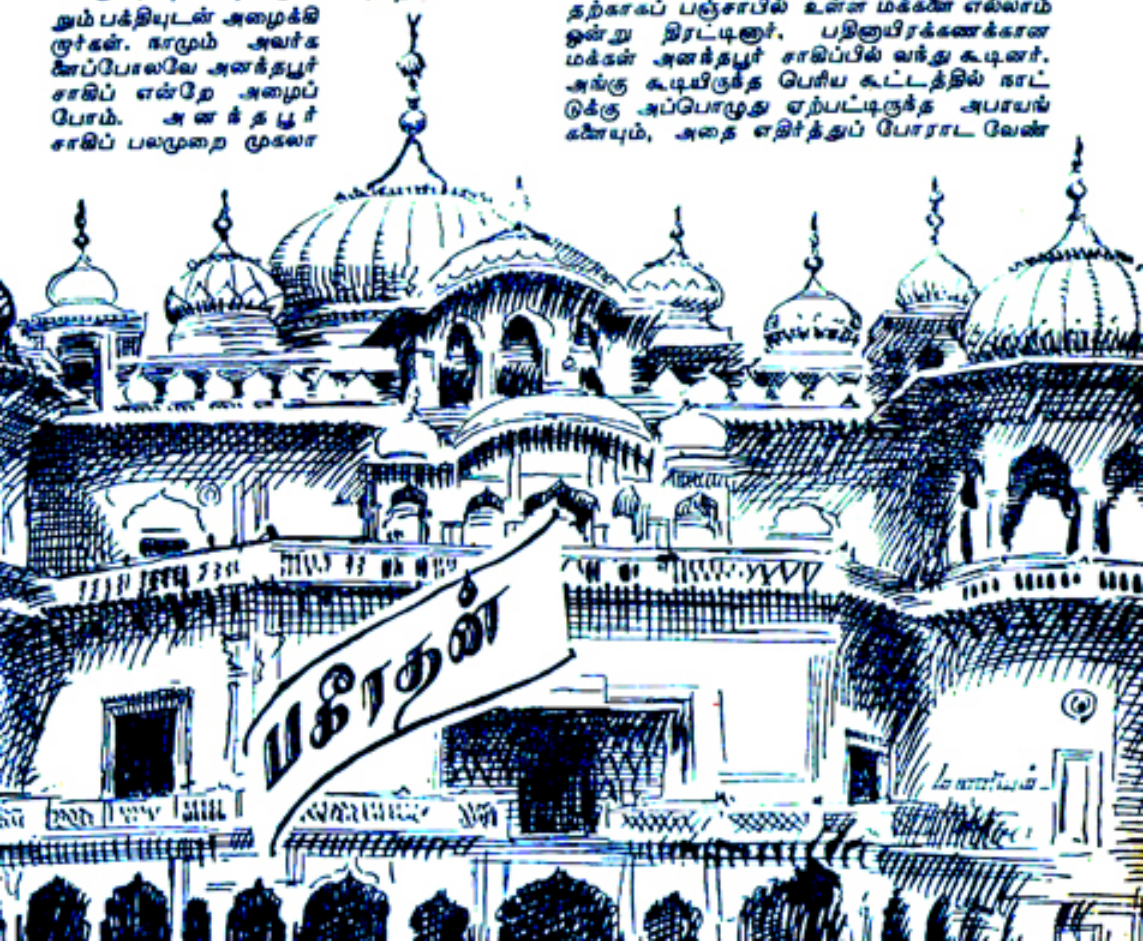 றும் பக்தியுடன் அழைக்கி
றார்கள். நாமும் அவர்க
ளைப்போலவே அனந்தபூர்
சாகிப் என்றே அழைப்
போம். அனந்தபூர்
சாகிப் பலமுறை முகலா
தற்காகப் பஞ்சாபில் உள்ள மக்களை எல்லாம்
ஒன்று திரட்டினார். பதினாயிரக்கணக்கான
மக்கள் அனந்தபூர் சாகிப்பில் வந்து கூடினர்.
அங்கு கூடியிருந்த பெரிய கூட்டத்தில் நாட்
டுக்கு அப்பொழுது ஏற்பட்டிருந்த அபாயங்
களையும், அதை எதிர்த்துப் போராட வேண்
பகீரதன்